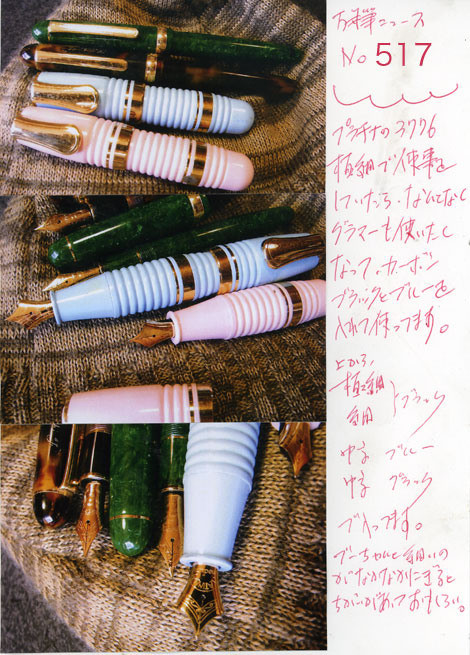 万年筆ニュース
No 517
プラチナの3776
極細で仕事を
していたら、なんとなく
グラマーも使いたく
なって、カーボン
ブラックとブルーを
入れて使ってます。
上から、
極細
細 ブラック
中字 ブルー
中字 ブラック
で入ってます。
ブーちゃんと細いの
がなかなかにぎると
ちがいがあっておもしろい。